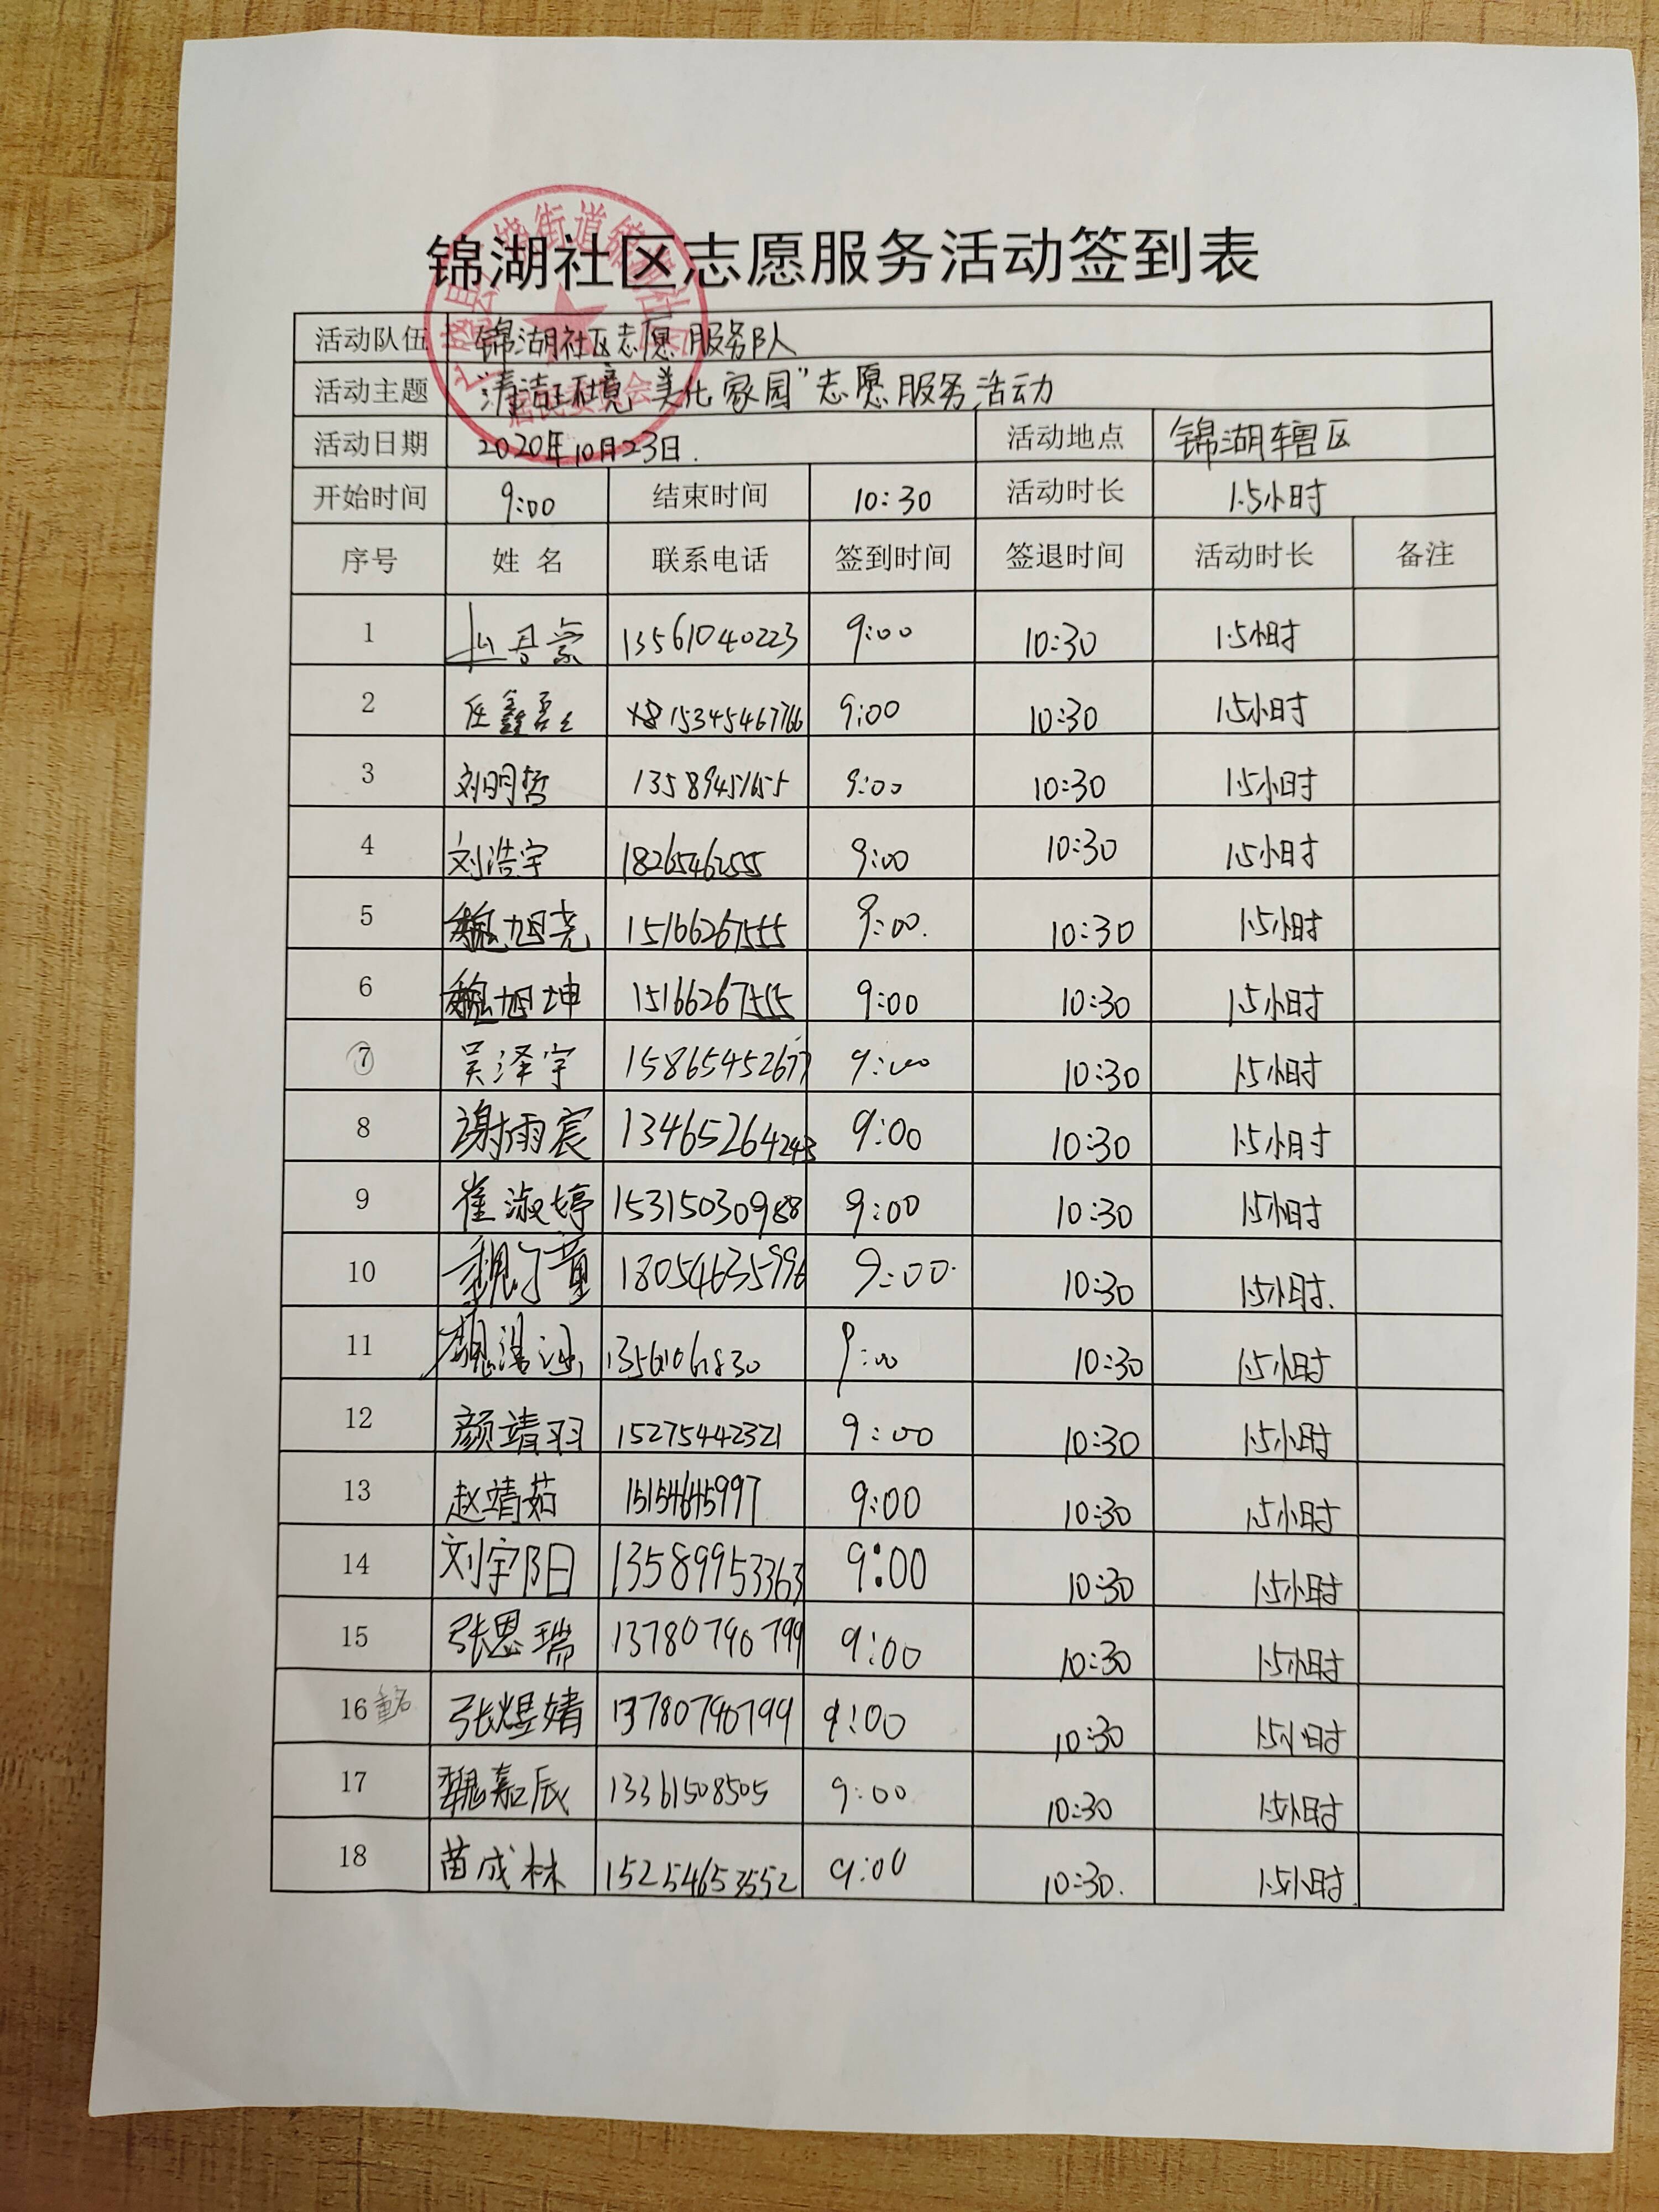 锦湖社区志愿服务活动签到表
活动队伍 锦湖社区志愿服务队
活动主题 "清洁环境 美化家园"志愿服务活动
活动日期 2020年10月23日. 活动地点 锦湖辖区
开始时间 9:00 结束时间 10:30 活动时长 1.5小时
序号 姓 名 联系电话 签到时间 签退时间 活动时长 备注
1 13561040223 9:00 10:30 1.5小时
2 任鑫磊 15345467766 9:00 10:30 1.5小时
3 刘明哲 9:00 10:30 1.5小时
4 刘浩宇 9:00 10:30 1.5小时
5 魏旭尧 15166267555 9:00. 10:30 1.5小时
6 魏旭坤 15166267555 9:00 10:30 1.5小时
7 吴泽宇 15865452677 9:00 10:30 1.5小时
8 谢雨宸 13465264243 9:00 10:30 1.5小时
9 崔淑婷 15315030988 9:00 10:30 1.5小时
10 魏丁童 18054635996 9:00. 10:30 1.5小时.
11 13561061830 9:00 10:30 1.5小时
12 颜靖羽 15275442321 9:00 10:30 1.5小时
13 赵靖茹 15154645997 9:00 10:30 1.5小时
14 刘宇阳 13589953363 9:00 10:30 1.5小时
15 张恩瑞 13780790799 9:00 10:30 1.5小时
16 重名 张煜婧 13780790799 9:00 10:30 1.5小时
17 魏嘉辰 13361508505 9:00 10:30 1.5小时
18 苗成林 15254653552 9:00 10:30. 1.5小时